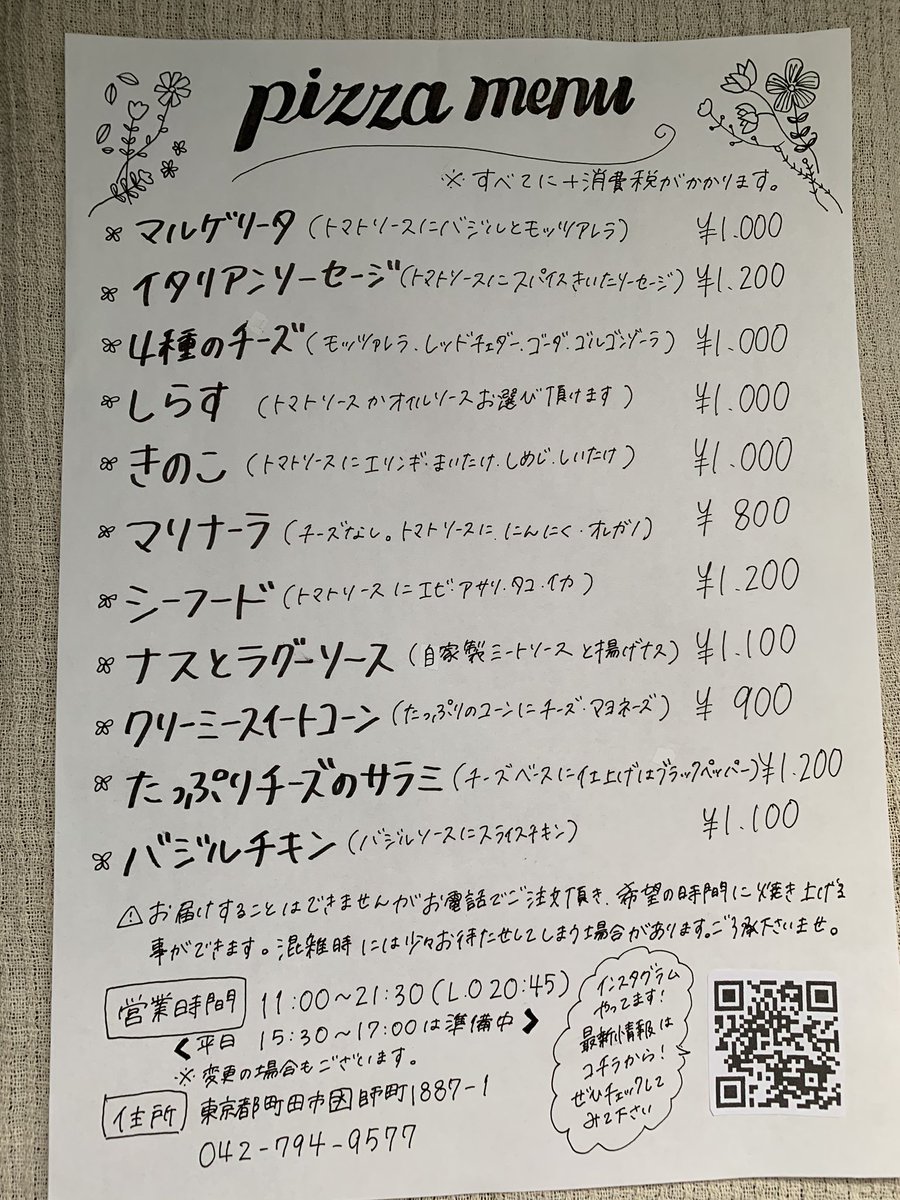 pizza menu
※すべてに+消費税がかかります。
マルゲリータ (トマトソースにバジルとモッツアレラ) ¥1.000
イタリアンソーセージ (トマトソースにスパイスきいたソーセージ) ¥1.200
4種のチーズ (モッツァレラ.レッドチェダー.ゴーダ.ゴルゴンゾーラ) ¥1.000
しらす (トマトソースかオイルソースお選び頂けます) ¥1.000
きのこ (トマトソースにエリンギ・まいたけ.しめじ.しいたけ) ¥1.000
マリナーラ (チーズなし。トマトソースに.にんにく・オレガノ) ¥800
シーフード (トマトソースにエビ・アサリ.タコ・イカ) ¥1.200
ナスとラグーソース (自家製ミートソースと揚げナス) ¥1.100
クリーミースイートコーン (たっぷりのコーンにチーズ・マヨネーズ) ¥900
たっぷりチーズのサラミ (チーズベースに仕上げはブラックペッパー) ¥1.200
バジルチキン (バジルソースにスライスチキン) ¥1.100
⚠お届けすることはできませんがお電話でご注文頂き、希望の時間に焼き上げる
事ができます。混雑時には少々お待たせしてしまう場合があります。ご了承下さいませ。
営業時間 11:00〜21:30(L.O 20:45)
<平日 15:30〜17:00は準備中>
※変更の場合もございます。
住所 東京都町田市図師町1887-1
042-794-9577
インスタグラム
やってます!
最新情報は
コチラから!
ぜひチェックして
みて下さい